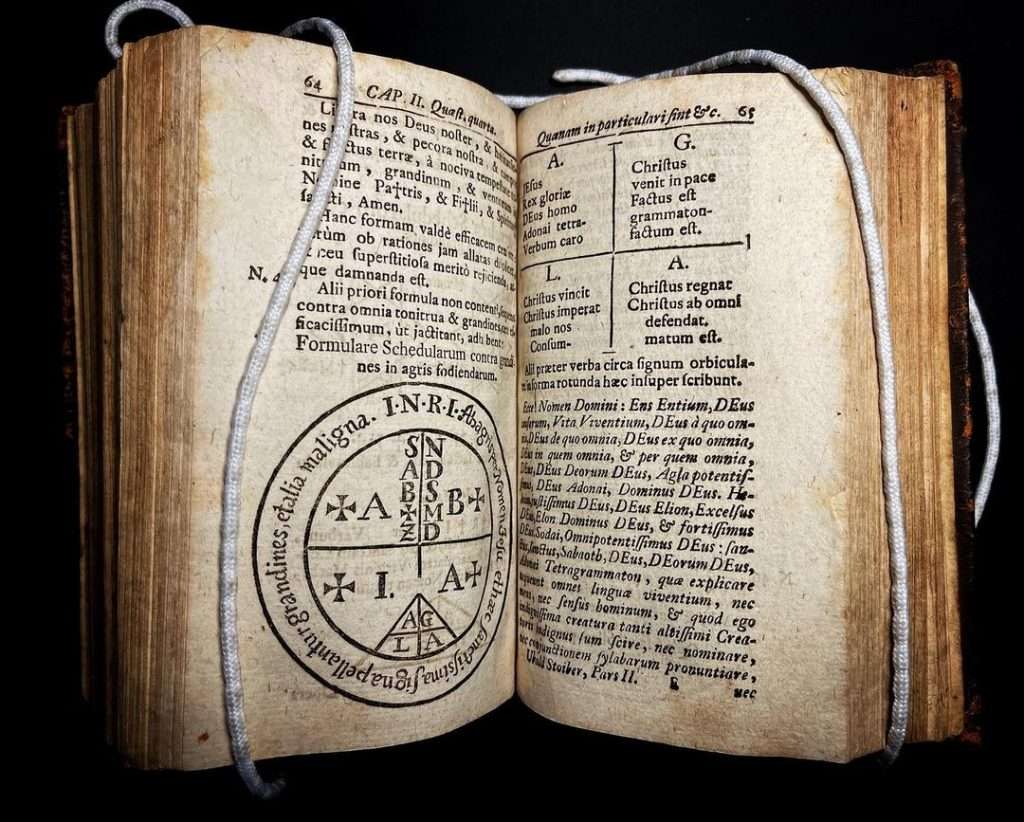 64 CAP. II. Quæst. quarta.
nos Deus noster, &
nes nostras, & pecora nostra, &
& fructus terræ, à nociva
grandinum, &
Pa†tris, & Fi†lii, &
Amen.
Hanc formam valdè efficacem
ob rationes jam allatas
ceu superstitiosa meritò
que damnanda est.
N.
Alii priori formula non contenti,
contra omnia tonitrua & grandines
ficacissimum, ùt jactitant,
Formulare Schedularum contra
nes in agris fodiendarum.
I·N·R·I· et hæc sanctissima signa pellantur grandines, et alia maligna.
S N
A D
B S
✠ M
Z D
✠ A B ✠
✠ I. A ✠
A G
L A
Quænam in particulari sint &c. 65
A.
JEsus
Rex gloriæ
DEus homo
Adonai tetra-
Verbum caro
G.
Christus
venit in pace
Factus est
grammaton-
factum est.
L.
Christus vincit
Christus imperat
malo nos
Consum-
A.
Christus regnat
Christus ab omni
defendat.
matum est.
Alii præter verba circa signum orbicula-
forma rotunda hæc insuper scribunt.
Ecce! Nomen Domini: Ens Entium, DEus
Vita Viventium, DEus à quo om-
DEus de quo omnia, DEus ex quo omnia,
DEus in quem omnia, & per quem omnia,
DEus Deorum DEus, Agla potentis-
DEus Adonai, Dominus DEus.
DEus, DEus Elion, Excelsus
DEus, Elon Dominus DEus, & fortissimus
Sodai, Omnipotentissimus DEus: san-
Sabaoth, DEus, DEorum DEus,
Adonai Tetragrammaton, quæ explicare
omnes linguæ viventium, nec
nec sensus hominum, & quod ego
indignissima creatura tanti altissimi Crea-
indignus sum scire, nec nominare,
nec conjunctionem sylabarum pronuntiare,
Ubald Stoiber, Pars II. E nec